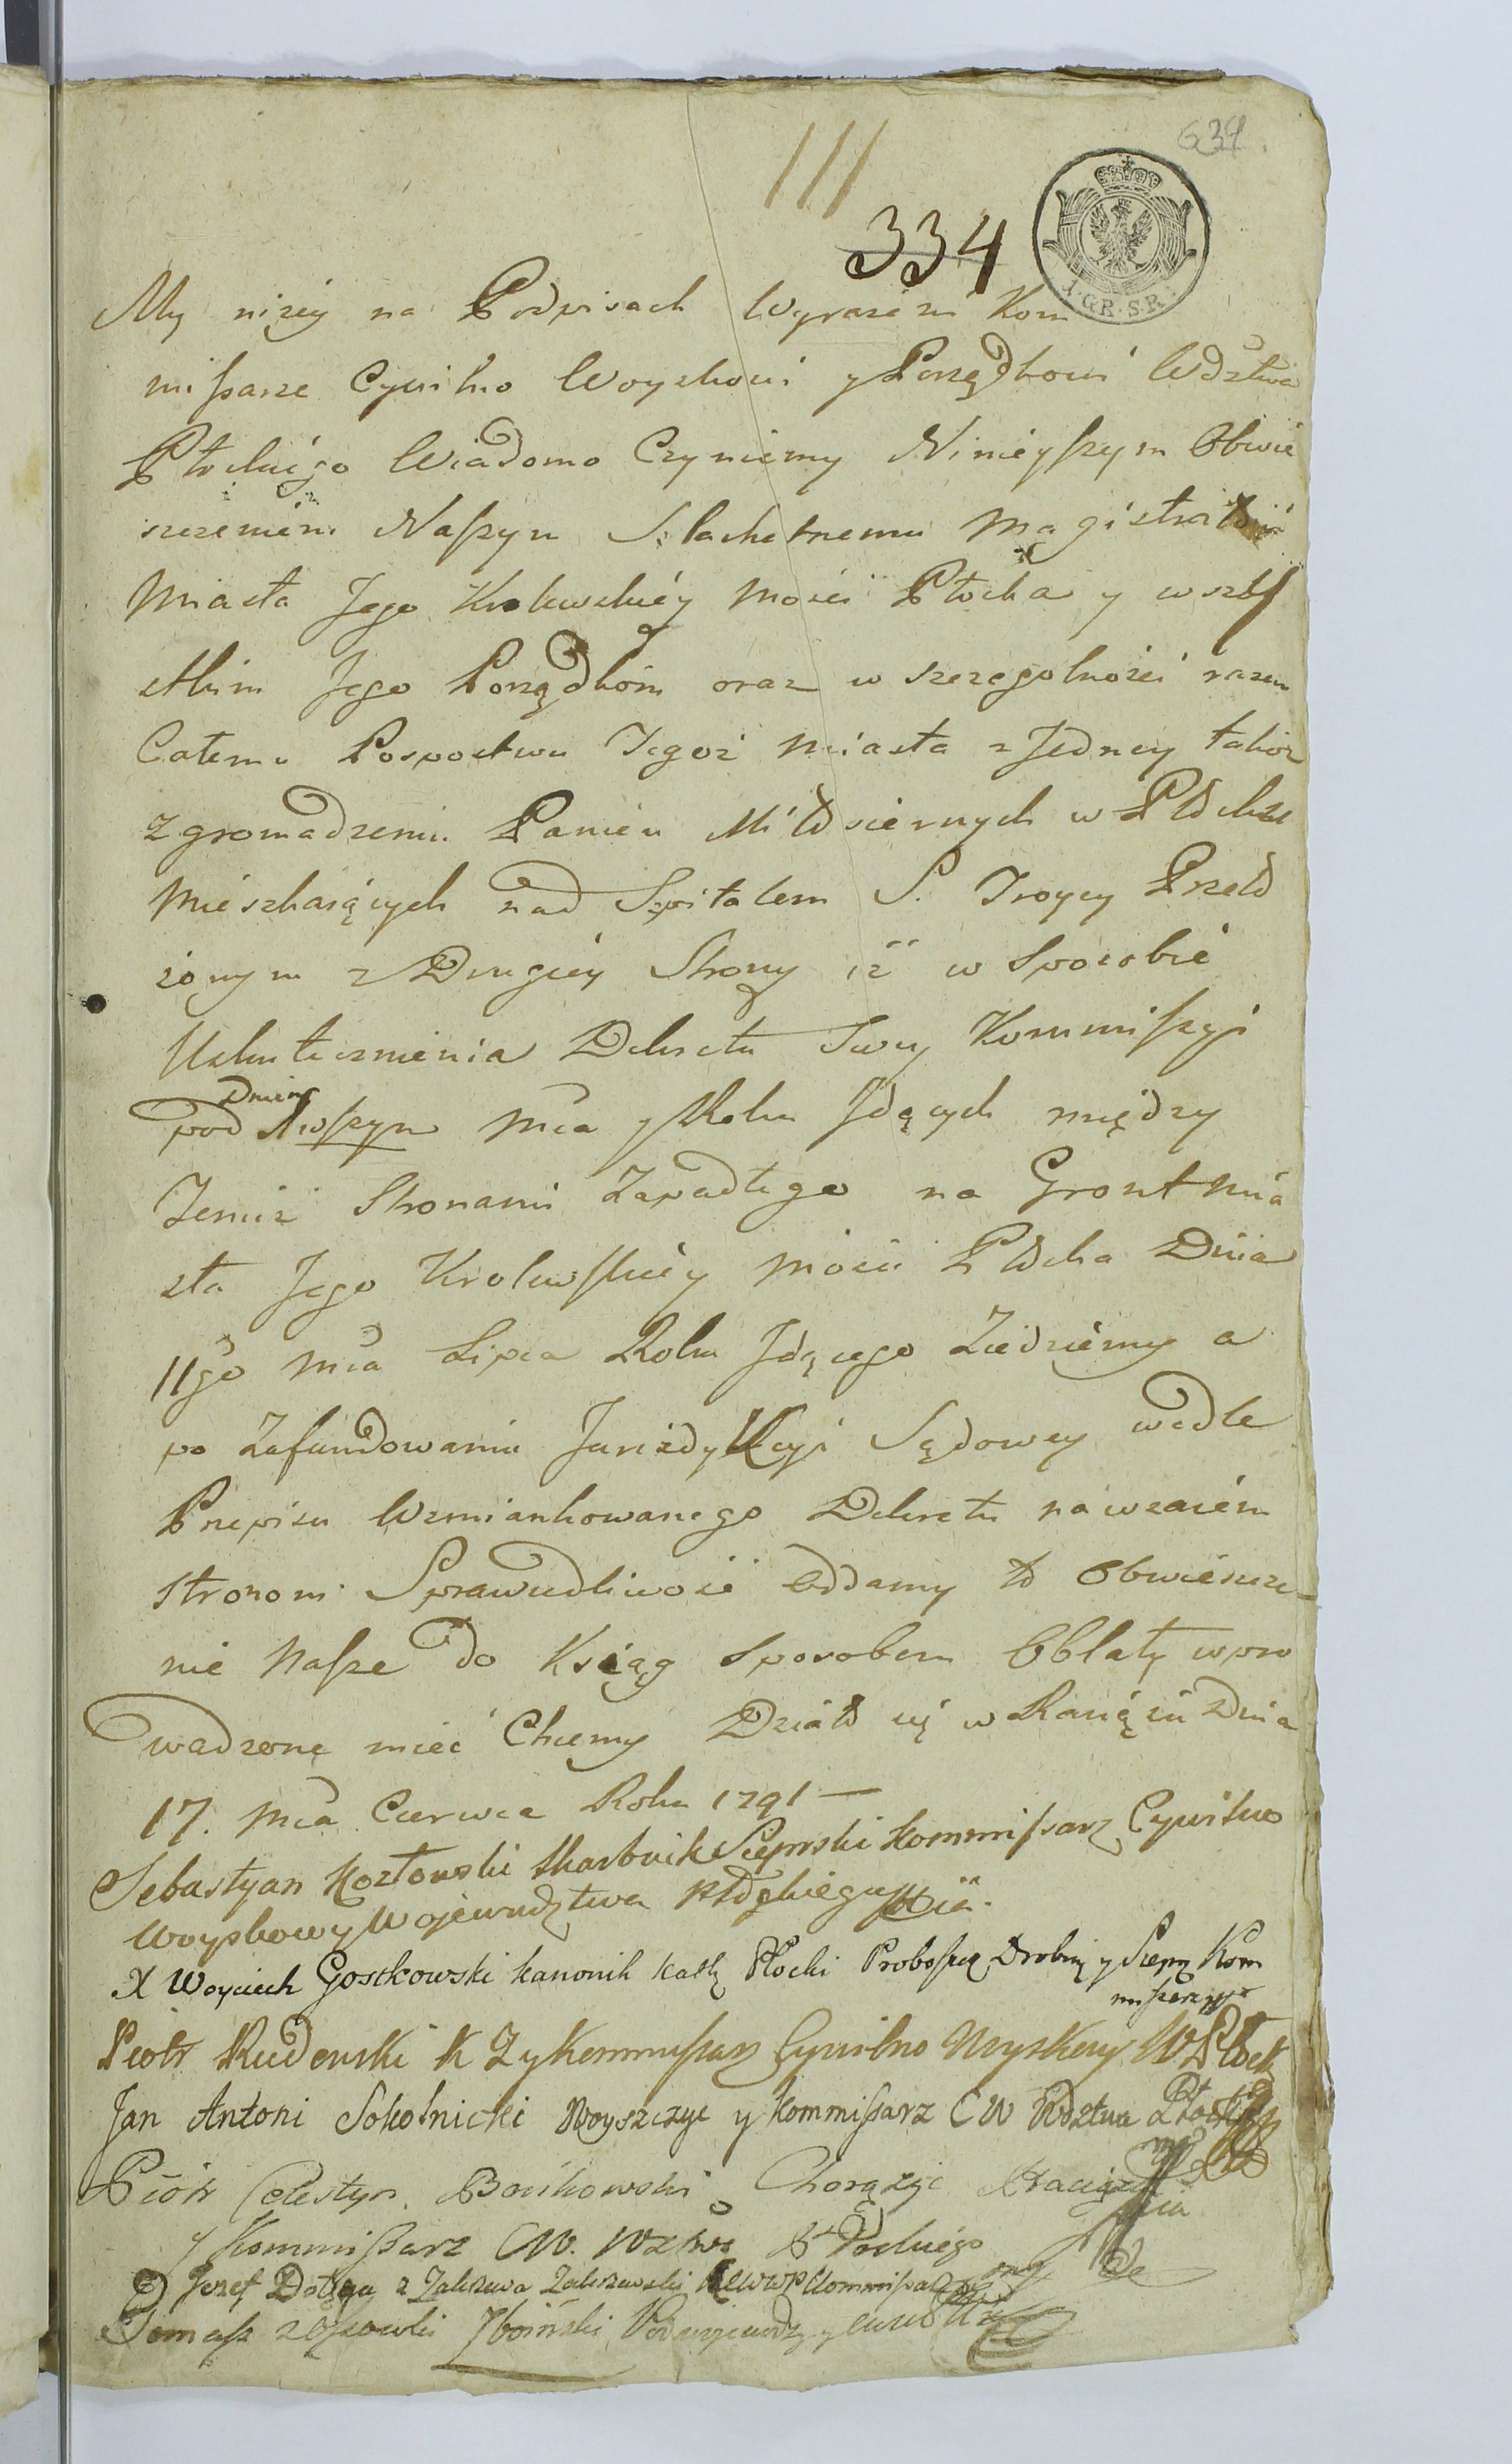 634.
334
1 GR. S. R.
My niżey na Podpisach Wyrażeni Kom
mißarze Cywilno Woyskowi y Porządkowi Wdztwa
Płockiego Wiadomo Czyniemy Ninieyßzym Obwie
szczeniem Naßzym Szlachetnemu Magistratowi
Miasta Jego Krolewskiéy Mości Płocka y wszy
stkim Jego Porządkóm oraz w szczegolności razem
Całemu Pospolstwu Tegoż Miasta z Jedney także
zgromadzeniu Panien Miłosiernych w Płocku
Mieszkaiących nad Szpitalem S. Troycy Przeło
żonym z Drugiéy Strony iż w Sposobie
Uskutecznienia Dekretu Swey Kommißyi
Dniem
pod Mia y Roku Jdących między
Temiż Stronami Zapadłego na Gront Mia
sta Jego Krolewskiéy Mości Płocka Dnia
11go Mca Lipca Roku Jdącego Ziedziémy a
po Zafundowaniu Jurizdykcyi Sądowey wedle
Przepisu Wzmiankowanego Dekretu nawzaiém
stronom Sprawiedliwość Oddamy to Obwieszcze
nie Naßze do Ksiąg sposobem Oblaty wpro
wadzone mieć Chcemy Działo się w Raciążu Dnia
17. Mca Czerwca Roku 1791 —
Sebastyan Kozłowski Skarbnik Sieprski Kommißarz Cywilno
Woyskowy Wojewudztwa Płockiego
X Woyciech Gostkowski kanonik Kattȝ Płocki Proboßcz Drobiń y Sieprȝ Kom
mißarz
Piotr Rudowski K Z y Kommißarz Cywilno Woyskowy W Płock
Jan Antoni Sokolnicki Woyszczyc y Kommißarz CW Wdztwa Płockiego
Piotr Celestyn Bońkowski Chorążyc Raciąz
y Kommißarz CW. Wztwa Płockiego
Jozef Dołęga z Zaluzewa Zaluzewski KCWWP Kommißarz
Tomasz z Ossowki Zboiński Podwojewodzy